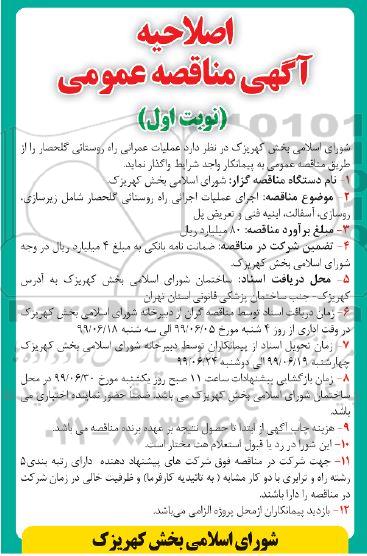 اصلاحیه
آگهی مناقصه عمومی
(نوبت اول)
شورای اسلامی بخش کهریزک در نظر دارد عملیات عمرانی راه روستائی گلحصار را از
طریق مناقصه عمومی به پیمانکار واجد شرایط واگذار نماید.
۱- نام دستگاه مناقصه گزار: شورای اسلامی بخش کهریزک.
۲- موضوع مناقصه: اجرای عملیات اجرائی راه روستائی گلحصار شامل زیرسازی،
روسازی، آسفالت، ابنیه فنی و تعریض پل
۳- مبلغ برآورد مناقصه: ۸۰ میلیارد ریال
۴- تضمین شرکت در مناقصه: ضمانت نامه بانکی به مبلغ ۴ میلیارد ریال در وجه
شورای اسلامی بخش کهریزک.
۵- محل دریافت اسناد: ساختمان شورای اسلامی بخش کهریزک به آدرس
کهریزک- جنب ساختمان پزشکی قانونی استان تهران
۶- زمان دریافت اسناد توسط مناقصه گران از دبیرخانه شورای اسلامی بخش کهریزک
در وقت اداری از روز ۴ شنبه مورخ ۹۹/۰۶/۰۵ الی سه شنبه ۹۹/۰۶/۱۸
۷- زمان تحویل اسناد از پیمانکاران توسط دبیرخانه شورای اسلامی بخش کهریزک
چهارشنبه ۹۹/۰۶/۱۹ الی دوشنبه ۹۹/۰۶/۲۴
۸- زمان بازگشائی پیشنهادات ساعت ۱۱ صبح روز یکشنبه مورخ ۹۹/۰۶/۳۰ در محل
ساختمان شورای اسلامی بخش کهریزک می باشد. ضمنا حضور نماینده اختیاری می
باشد.
۹- هزینه چاپ آگهی از ابتدا تا حصول نتیجه بر عهده برنده مناقصه می باشد.
۱۰- این شورا در رد یا قبول استعلام ها مختار است.
۱۱- جهت شرکت در مناقصه فوق شرکت های پیشنهاد دهنده دارای رتبه بندی۵
رشته راه و ترابری با دو کار مشابه ( به تائیدیه کارفرما) و ظرفیت خالی در زمان شرکت
در مناقصه را دارا باشند.
۱۲- بازدید پیمانکاران ازمحل پروژه الزامی می‌باشد.
شورای اسلامی بخش کهریزک